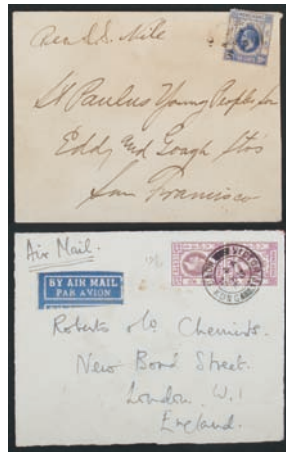 S.S. Nile
St Paulus Young Peoples Soc
Eddy and Gough Sts
San Francisco
Air Mail.
BY AIR MAIL
PAR AVION
VICTORIA
HONG KONG
Roberts &/o Chemists.
New Bond Street.
London. W.1
England.